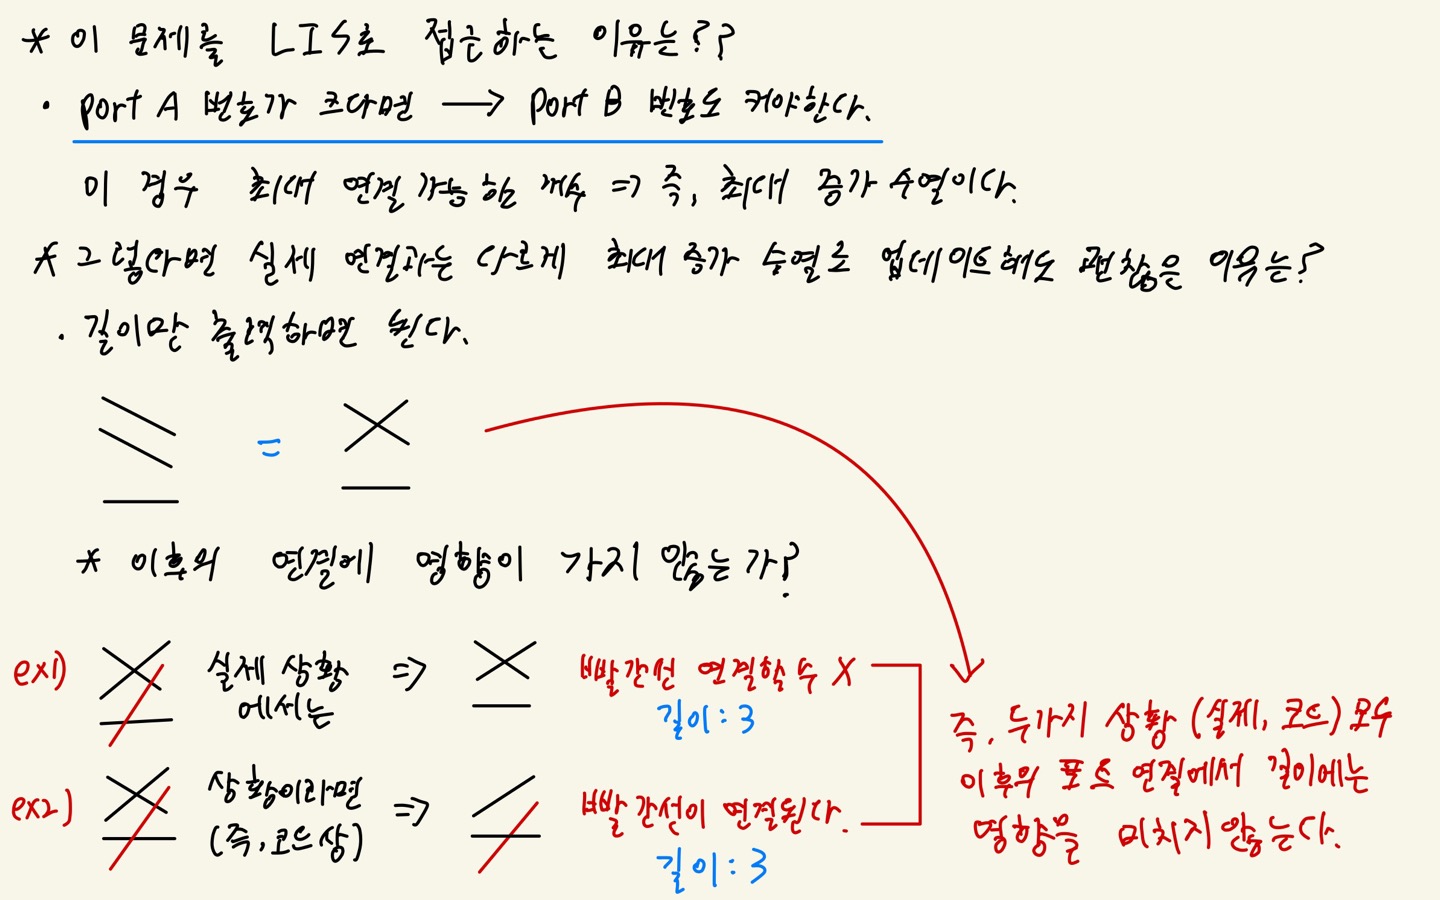 * 이 문제를 LIS로 접근하는 이유는??
· port A 번호가 크다면 → Port B 번호도 커야한다.
이 경우 최대 연결 가능한 개수 => 즉, 최대 증가 수열이다.
* 그렇다면 실제 연결과는 다르게 최대 증가 수열로 업데이트해도 괜찮은 이유는?
· 길이만 출력하면 된다.
=
* 이후의 연결에 영향이 가지 않는가?
ex1) 실제 상황 에서는 => 빨간선 연결할 수 X
길이 : 3
ex2) 상황이라면 (즉, 코드상) => 빨간선이 연결된다.
길이 : 3
즉, 두가지 상황 (실제, 코드) 모두
이후의 포트 연결에서 길이에는
영향을 미치지 않는다.